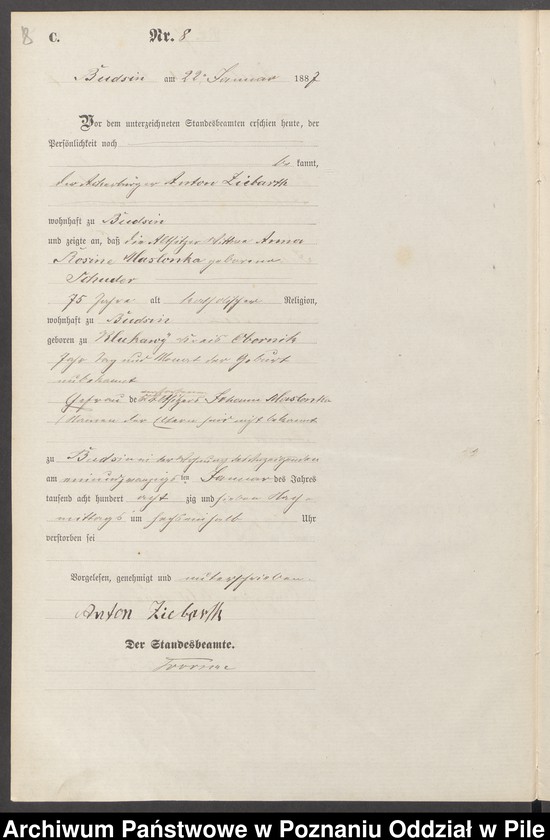 B C. Nr. 8
Budsin am 22ten Januar 1887
Vor dem unterzeichneten Standesbeamten erschien heute, der
Persönlichkeit nach
be kannt,
der Ackerbürger Anton Ziebarth
wohnhaft zu Budsin
und zeigte an, daß die Altsitzer Wittwe Anna
Rosine Maslonka geborene
Schuder
75 Jahre alt katholischer Religion,
wohnhaft zu Budsin
geboren zu Kreis Obornik
Jahr Tag und Monat der Geburt
unbekannt
Ehefrau des Altsitzers Johann Maslonka
Namen der Eltern sind nicht bekannt
zu Budsin in der Behausung des Anzeigenden
am einundzwanzigsten Januar des Jahres
tausend acht hundert acht zig und sieben Nach-
mittags um sechseinhalb Uhr
verstorben sei
Vorgelesen, genehmigt und unterschrieben
Anton Ziebarth
Der Standesbeamte.
Archiwum Państwowe w Poznaniu Oddział w Pile